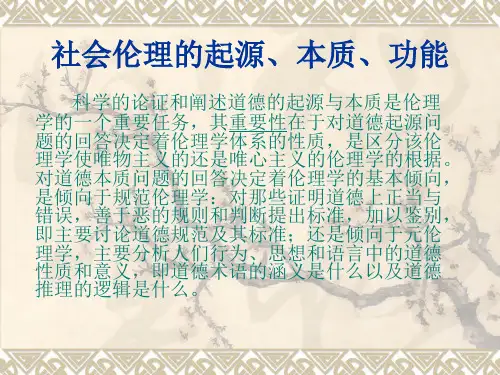 社会伦理的起源、本质、功能
科学的论证和阐述道德的起源与本质是伦理
学的一个重要任务，其重要性在于对道德起源问
题的回答决定着伦理学体系的性质，是区分该伦
理学使唯物主义的还是唯心主义的伦理学的根据。
对道德本质问题的回答决定着伦理学的基本倾向，
是倾向于规范伦理学：对那些证明道德上正当与
错误，善于恶的规则和判断提出标准，加以鉴别，
即主要讨论道德规范及其标准；还是倾向于元伦
理学，主要分析人们行为、思想和语言中的道德
性质和意义，即道德术语的涵义是什么以及道德
推理的逻辑是什么。